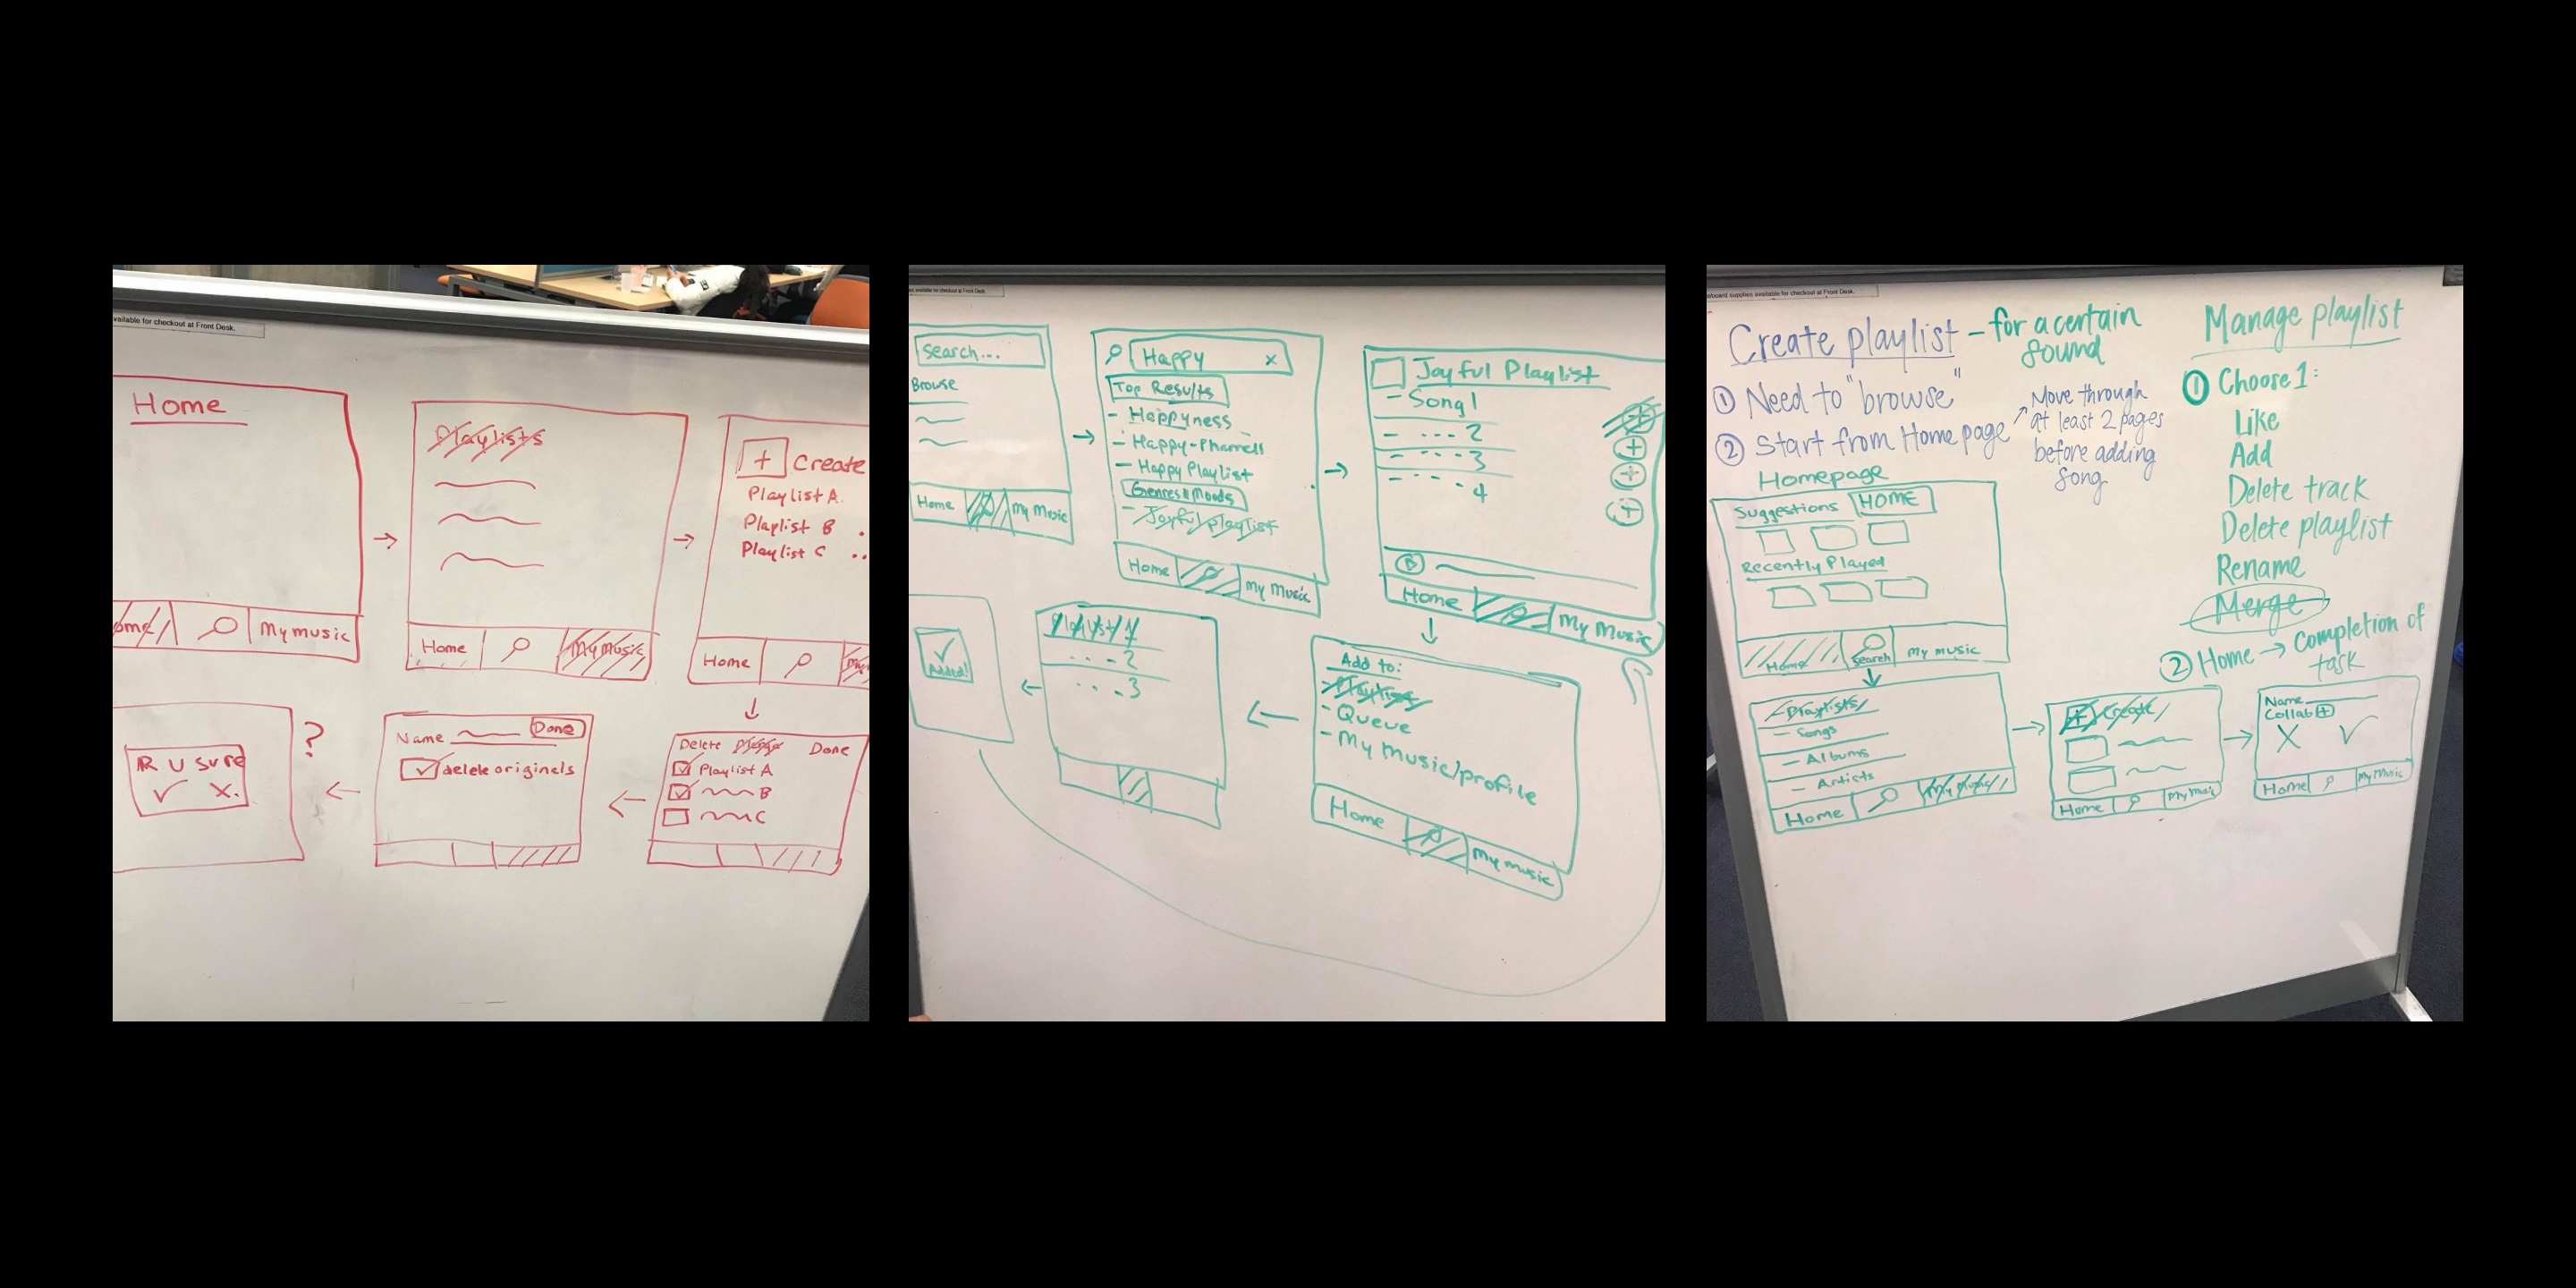 vailable for checkout at Front Desk.
Home
ome
My music
Playlists
Home
My music
+ Create
Playlist A
Playlist B
Playlist C
Home
My
Delete
Done
Playlist A
B
C
Name
Done
delete originals
R U sure
✓ X
?
es available for checkout at Front Desk
Search...
Browse
Home
My Music
Happy x
Top Results
- Happyness
- Happy-Pharrell
- Happy Playlist
Genres & Moods
- Joyful playlist
Home
My Music
Joyful Playlist
- Song 1
- --- 2
- --- 3
- --- 4
Home
My Music
Add to:
- Playlist
- Queue
- My music/profile
Home
My music
Playlist 1
... - 2
... - 3
Added!
eboard supplies available for checkout at Front Desk.
Create playlist - for a certain
sound
① Need to "browse"
② Start from Home page
Move through
at least 2 pages
before adding
song
Homepage
Suggestions
HOME
Recently Played
Home
Search
My music
- Playlists
- Songs
- Albums
- Artists
Home
My music
+ Create
Home
My Music
Name
Collab +
X ✓
Home
My Music
Manage playlist
① Choose 1:
Like
Add
Delete track
Delete playlist
Rename
Merge
② Home → completion of
task